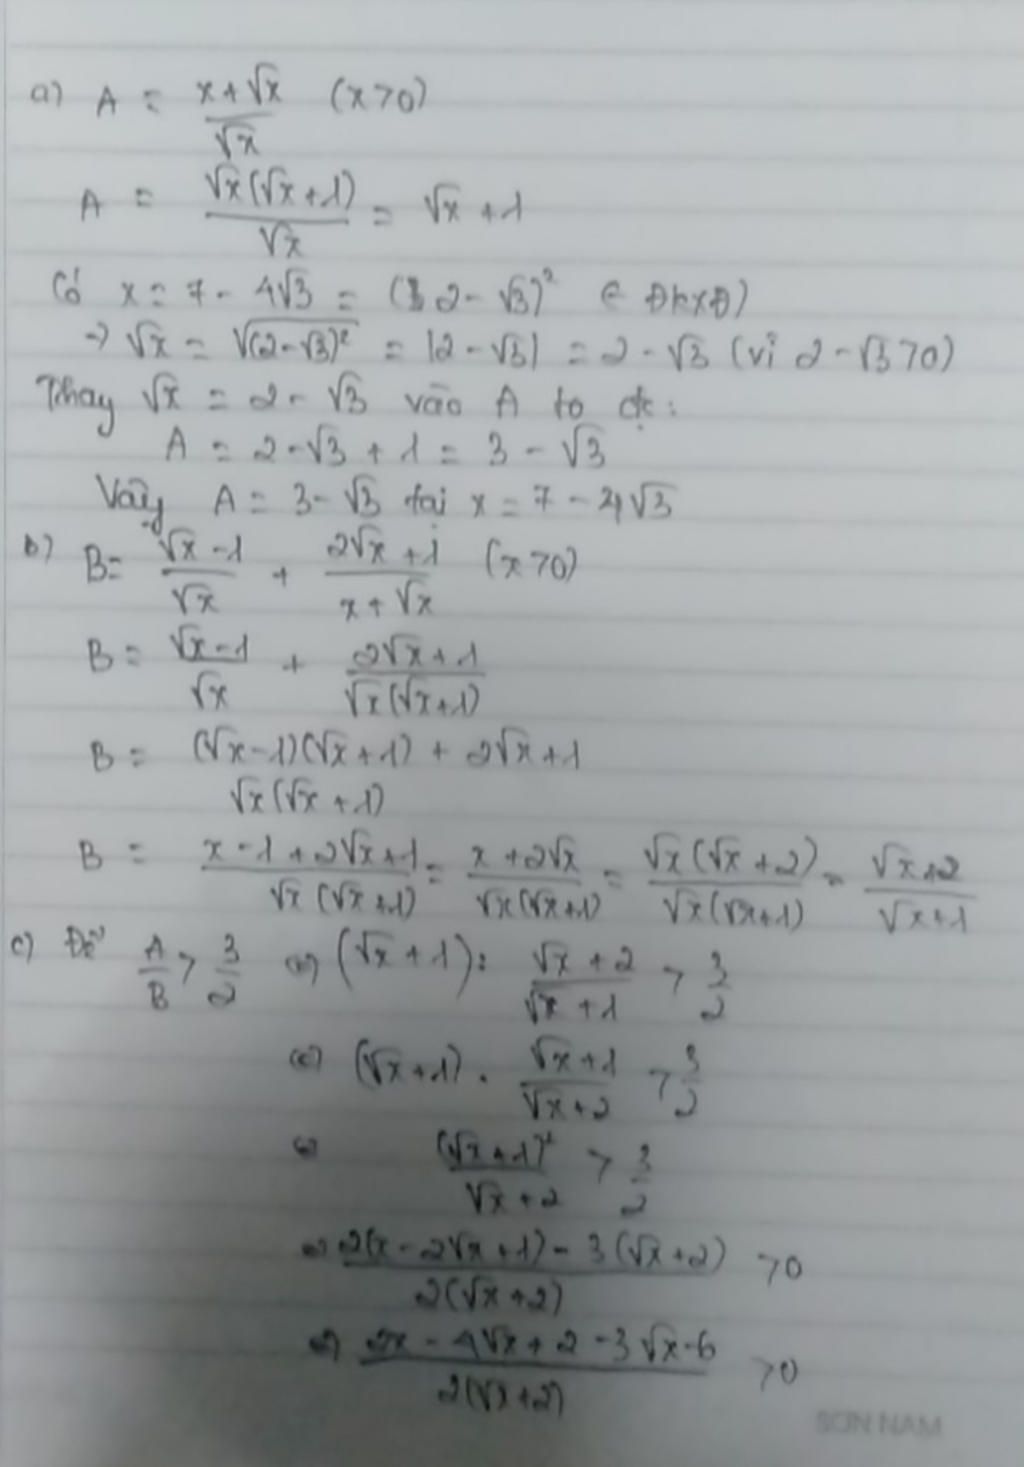 a) A = \frac{x+√x}{√x} (x>0)
A = \frac{√x(√x+1)}{√x} = √x + 1
Có x = 7 - 4√3 = (2 - √3)² ∈ ĐKXĐ)
→ √x = √(2-√3)² = |2 - √3| = 2 - √3 (vì 2 - √3 > 0)
Thay √x = 2 - √3 vào A ta đc:
A = 2 - √3 + 1 = 3 - √3
Vậy A = 3 - √3 tại x = 7 - 4√3
b) B = \frac{√x - 1}{√x} + \frac{2√x + 1}{x + √x} (x>0)
B = \frac{√x - 1}{√x} + \frac{2√x + 1}{√x(√x+1)}
B = \frac{(√x-1)(√x+1) + 2√x + 1}{√x(√x+1)}
B = \frac{x - 1 + 2√x + 1}{√x(√x+1)} = \frac{x + 2√x}{√x(√x+1)} = \frac{√x(√x+2)}{√x(√x+1)} = \frac{√x+2}{√x+1}
c) Để \frac{A}{B} > \frac{3}{2} (=) (√x + 1) : \frac{√x + 2}{√x + 1} > \frac{3}{2}
(=) (√x+1) . \frac{√x+1}{√x+2} > \frac{3}{2}
(=) \frac{(√x+1)²}{√x+2} > \frac{3}{2}
(=) \frac{2(x - 2√x + 1) - 3(√x+2)}{2(√x+2)} > 0
(=) \frac{2x - 4√x + 2 - 3√x - 6}{2(√x+2)} > 0
SON NAM